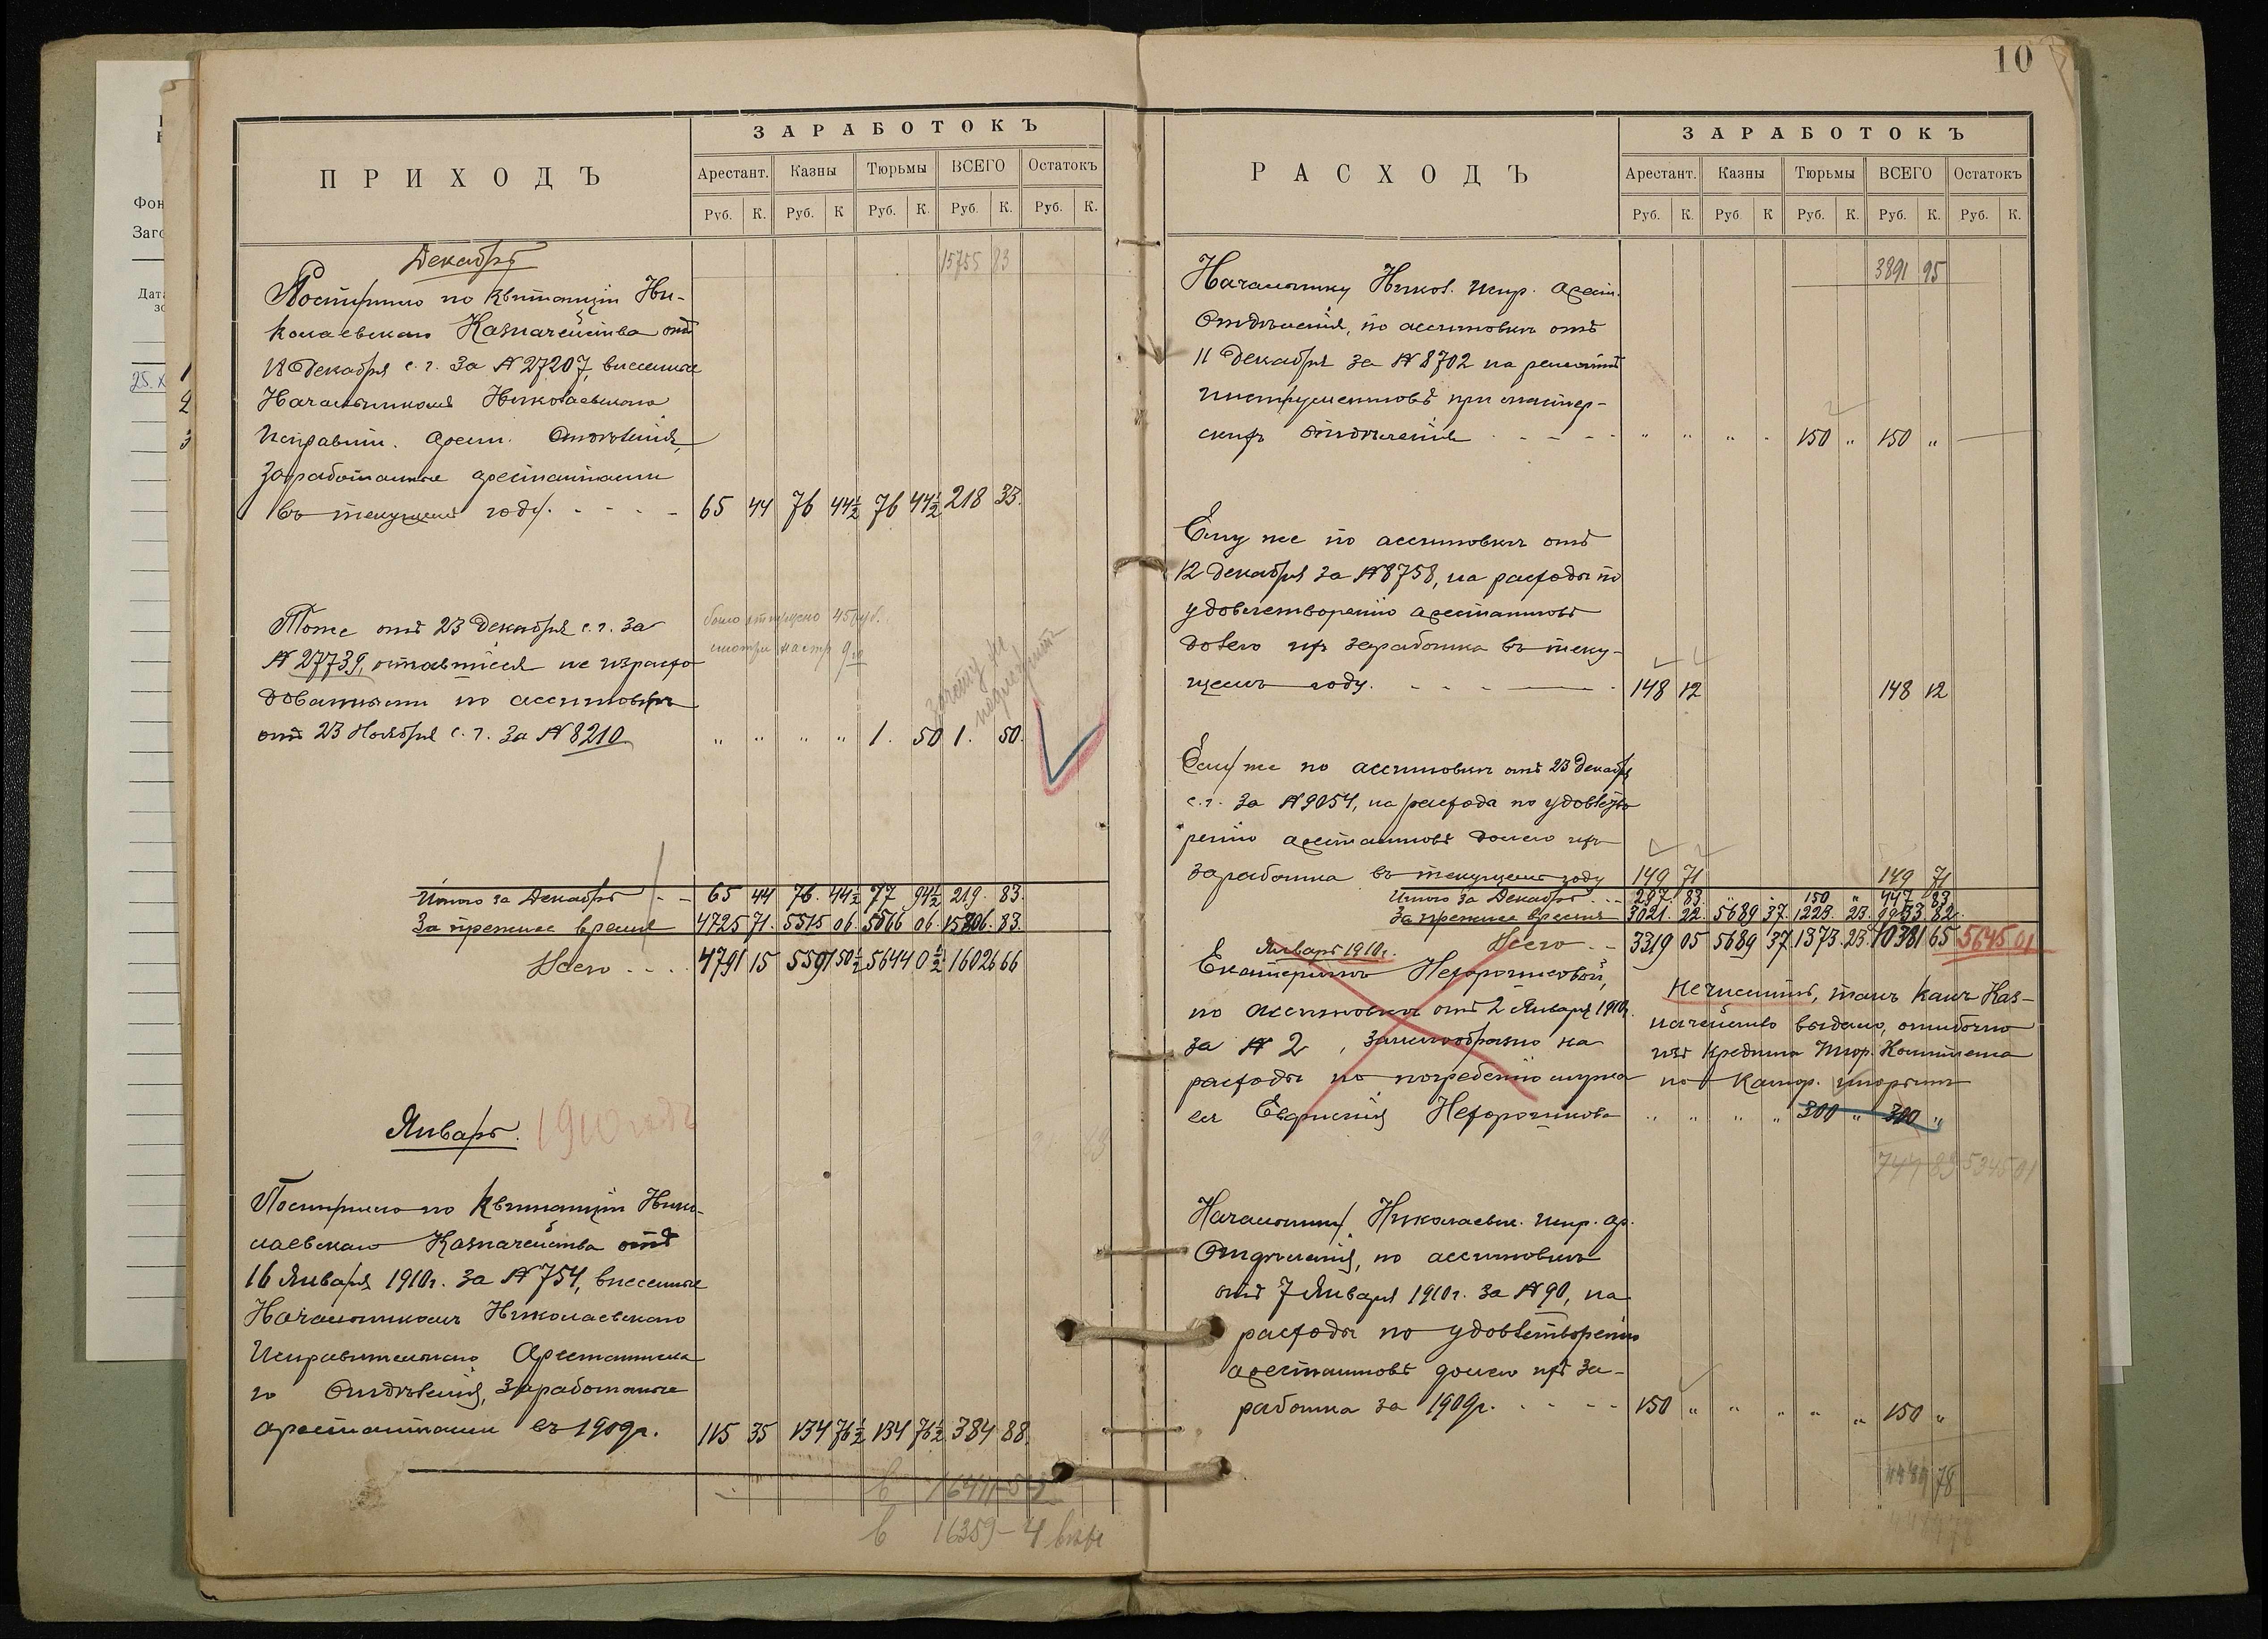 10
ПРИХОДЪ
ЗАРАБОТОКЪ
Арестант. Казны Тюрьмы ВСЕГО Остатокъ
Руб. К. Руб. К Руб. К. Руб. К. Руб. К.
Декабрь
15755 83
Поступило по квитанціи Ни-
колаевскаго Казначейства отъ
18 Декабря с. г. за № 27207, внесенные
Начальникомъ Николаевскаго
Исправит. Арест. Отдѣленія,
заработанные арестантами
въ текущемъ году. - - - - 65 44 76 44½ 76 44½ 218 33.
Тоже отъ 23 Декабря с. г. за
№ 27739, оставшіеся не израсхо
дованными по ассигновкѣ
отъ 23 Ноября с. г. за № 8210 „ „ „ „ 1. 50 1. 50.
было отпущено 45 руб.
смотри на стр 9
Итого за Декабрь - - 65 44 76. 44½ 77 94½ 219. 83.
За прежнее время 4725 71. 5515 06. 5566 06. 15806. 83.
Всего . . . 4791 15 5591 50½ 5644 0½ 16026 66
Январь. 1910 годъ
Поступило по квитанціи Нико-
лаевскаго Казначейства отъ
16 Января 1910г. за № 754, внесенные
Начальникомъ Николаевскаго
Исправительнаго Арестантска
го Отдѣленія, заработанные
арестантами въ 1909г. 115 35 134 76½ 134 76½ 384 88.
16359-4
РАСХОДЪ
ЗАРАБОТОКЪ
Арестант. Казны Тюрьмы ВСЕГО Остатокъ
Руб. К. Руб К Руб. К. Руб. К. Руб. К.
3891 95
Начальнику Никол. испр. арест.
Отдѣленія, по ассигновкѣ отъ
11 Декабря за № 8702 на ремонтъ
инструментовъ при мастер-
скихъ отдѣленія - - - - „ „ „ - 150 „ 150 „
Ему же по ассигновкѣ отъ
12 Декабря за № 8758, на расходы по
удовлетворенію арестантовъ
долею ихъ заработка въ теку-
щемъ году. - - - - 148 12 148 12
Ему же по ассигновкѣ отъ 23 Декабря
с. г. за № 9054, на расхода по удовлетво
ренію арестантовъ долею ихъ
заработка въ текущемъ году 149 71 149 71
Итого за Декабрь . . - 297. 83. „ - 150 „ 447 83
За прежнее время 3021. 22. 5689 37. 1223. 23. 9933. 82.
Всего . - 3319 05 5689 37 1373. 23. 10381 65 5645 01
Январь 1910г.
Екатеринѣ Нехорошковой,
по ассигновкѣ отъ 2 Января 1910г.
за № 2, заимообразно на
расходы по погребенію мужа
ея Нехорошкова „ „ „ „ 300 „ 300 „
Не числить, такъ какъ Каз-
начейство выдало, ошибочно
изъ кредита Тюр. Комитета
по Катор. тюрьмѣ
747 83 5345 01
Начальнику Николаевск. испр. ар.
Отдѣленія, по ассигновкѣ
отъ 7 Января 1910г. за № 90, на
расходы по удовлетворенію
арестантовъ долею изъ за-
работка за 1909г. - - - - 150 „ „ „ „ „ 150 „